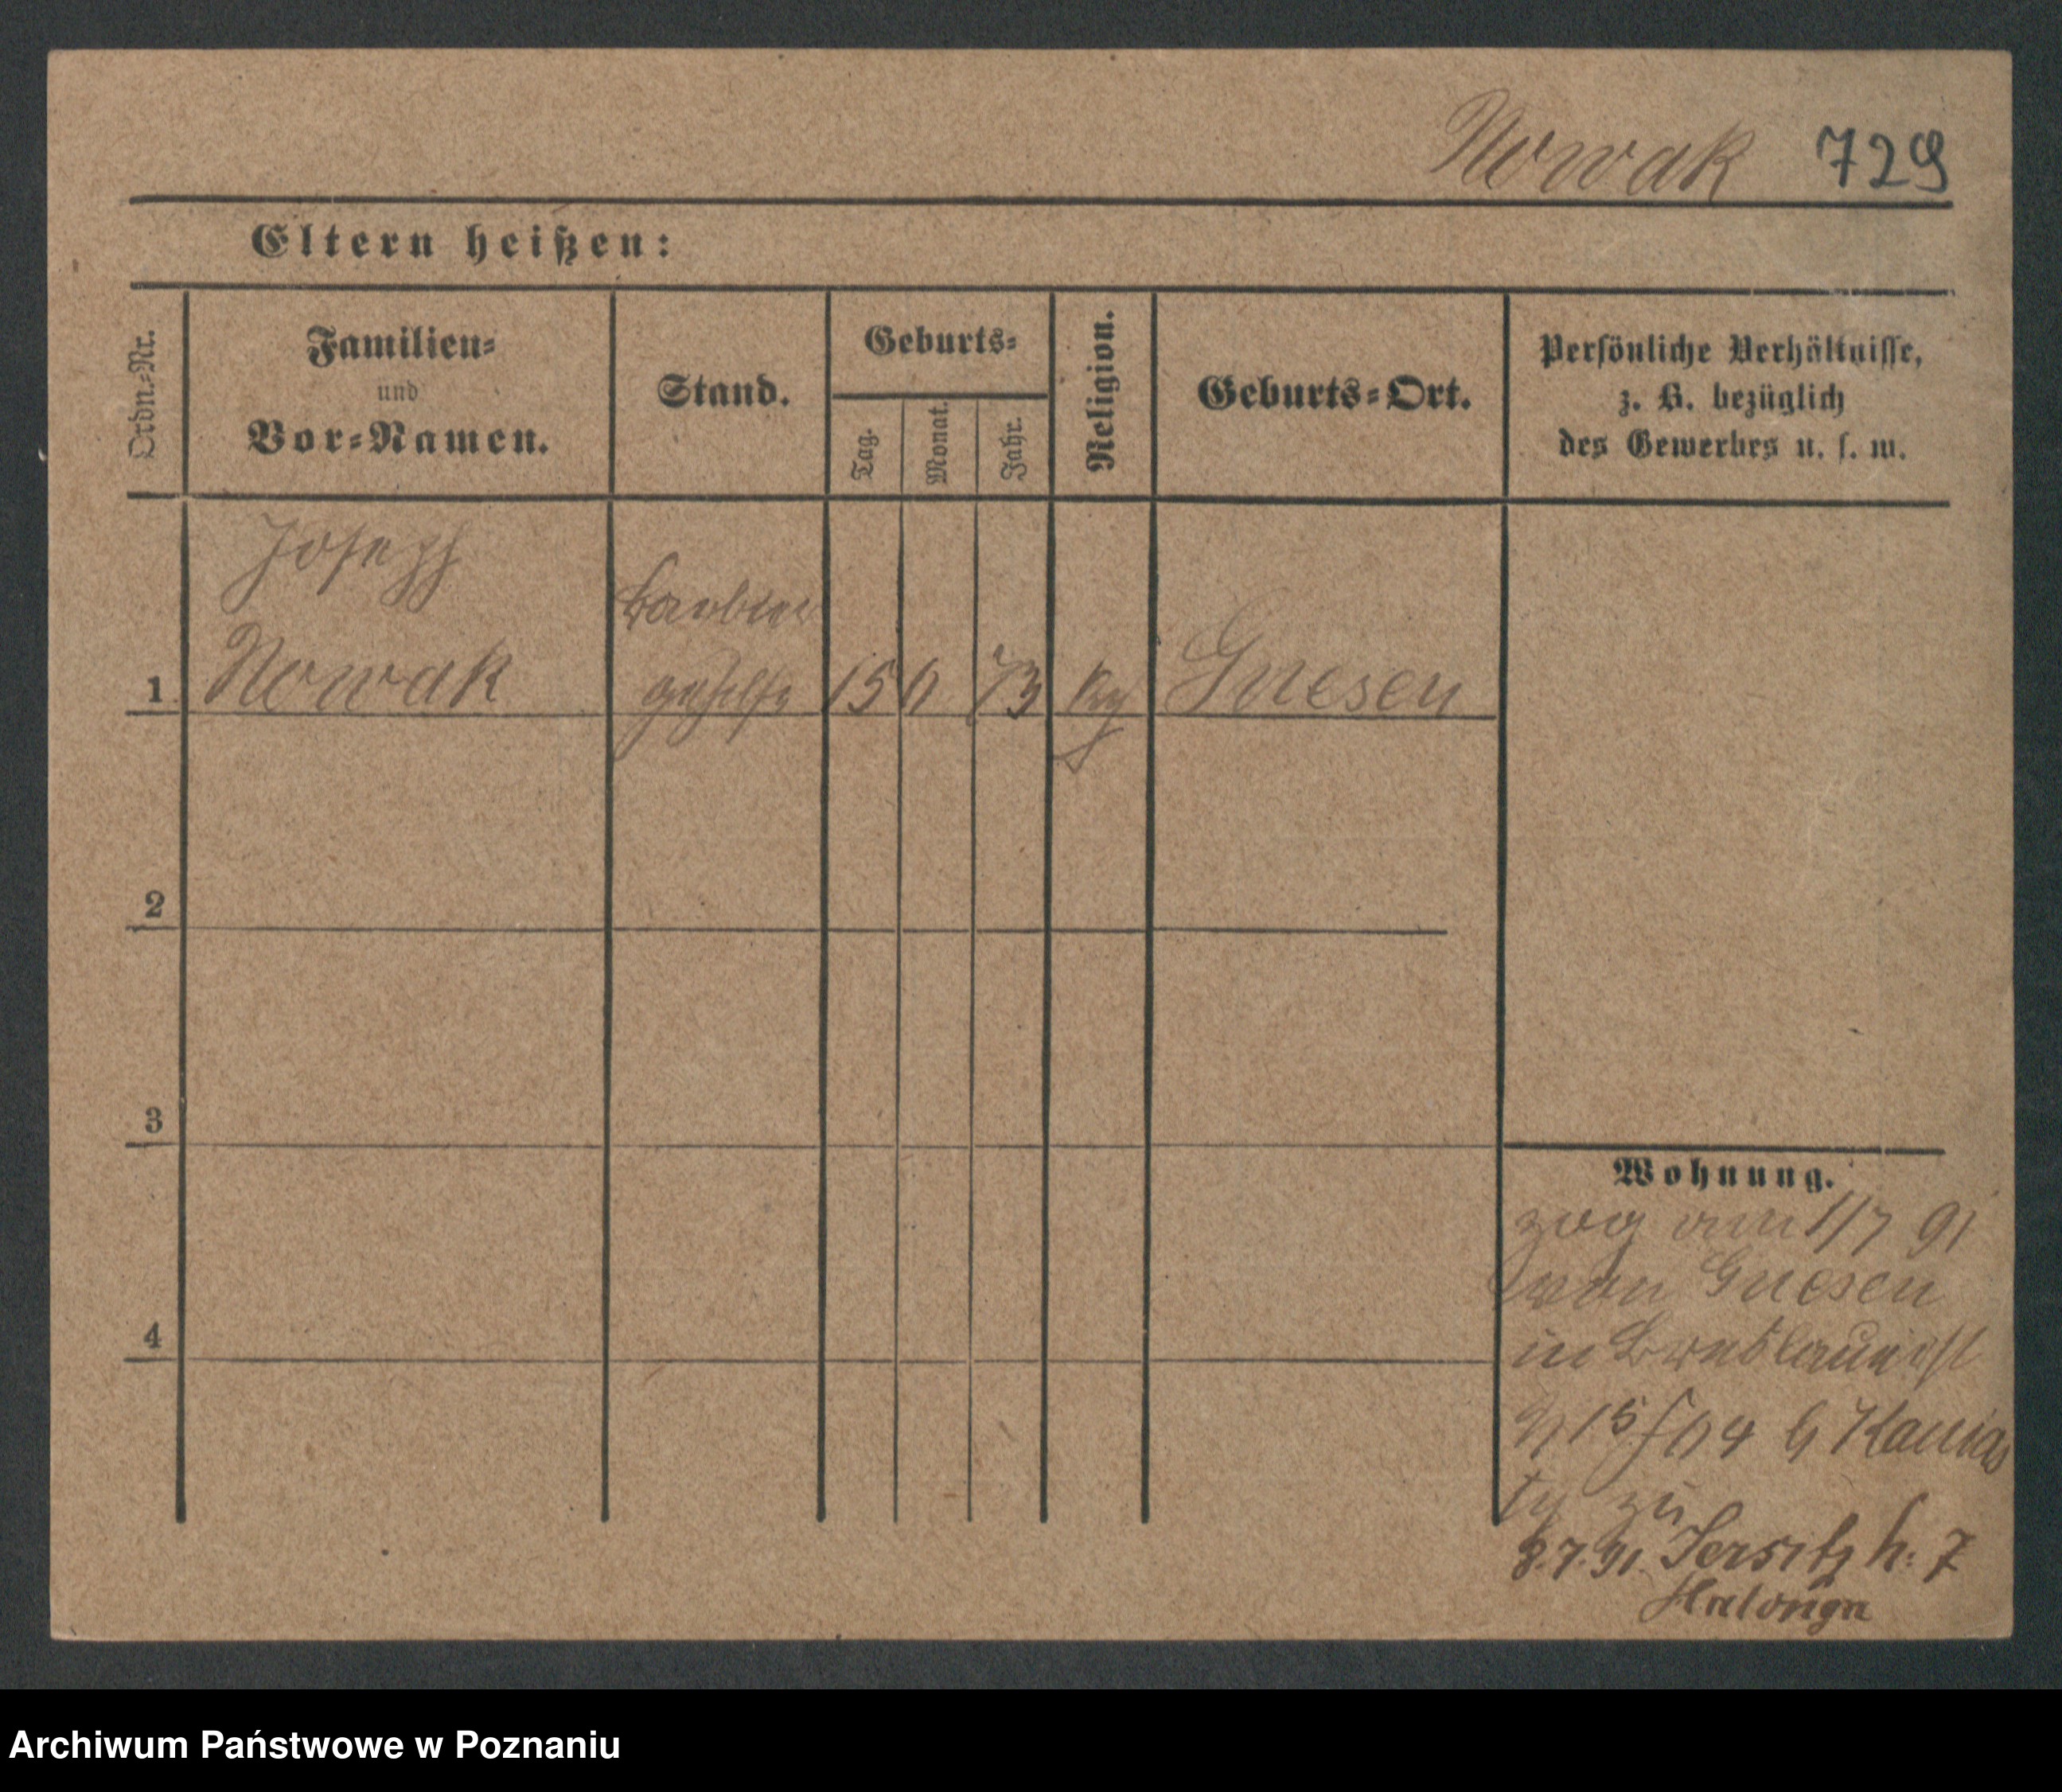 Nowak 729
Eltern heißen:
Ordn.-Nr.
Familien-
und
Vor-Namen.
Stand.
Geburts-
Tag.
Monat.
Jahr.
Religion.
Geburts-Ort.
Persönliche Verhältnisse,
z. B. bezüglich
des Gewerbes u. s. w.
Joseph
Nowak
Barbier
gehilfe
1
15
73
Gnesen
2
3
4
Wohnung.
zog am 1/7 91
von Gnesen
in
15
zu
8.7.91. Jersitz h: 7
Archiwum Państwowe w Poznaniu